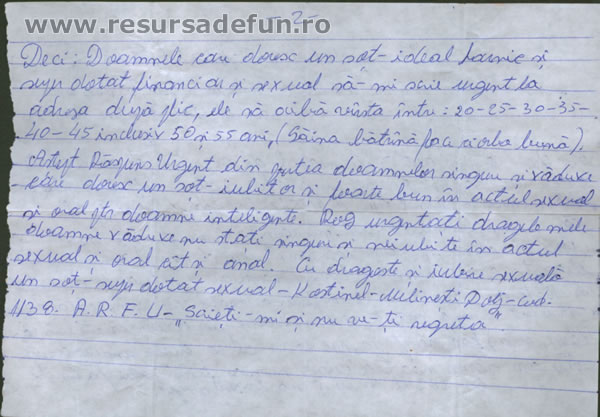 www.resursadefun.ro
- 2 -
Deci: Doamnele care doresc un soț- ideal harnic și
super dotat financiar și sexual să-mi scrie urgent la
adresa după plic, ele să aibă vîrsta între: 20-25-30-35-
40-45 inclusiv 50 și 55 ani, (Găina bătrînă face ciorba bună).
Aștept Răspuns Urgent din partea doamnelor singure și văduve
care doresc un soț- iubitor și foarte bun în actul sexual
și oral ptr doamne inteligente. Rog urgentați dragele mele
doamne văduve nu stați singure și neiubite în actul
sexual și oral cît și anal. Cu dragoste și iubire sexuală
un soț- super dotat sexual- Kostinel- Dolj- cod.
1138. A.R.F.U- „Scrieți-mi și nu ve-ți regreta"